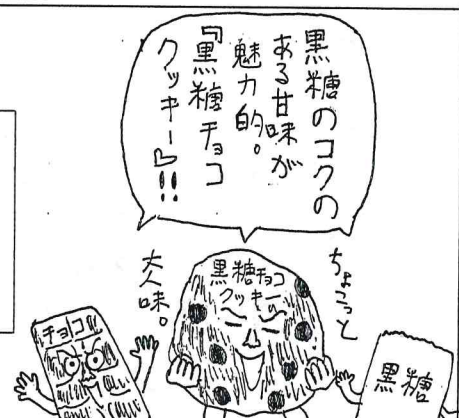 黒糖のコクの
ある甘味が
魅力的。
『黒糖チョコ
クッキー』!!
ちょこっと
大人味。
黒糖チョコ
クッキー
チョコ
黒糖